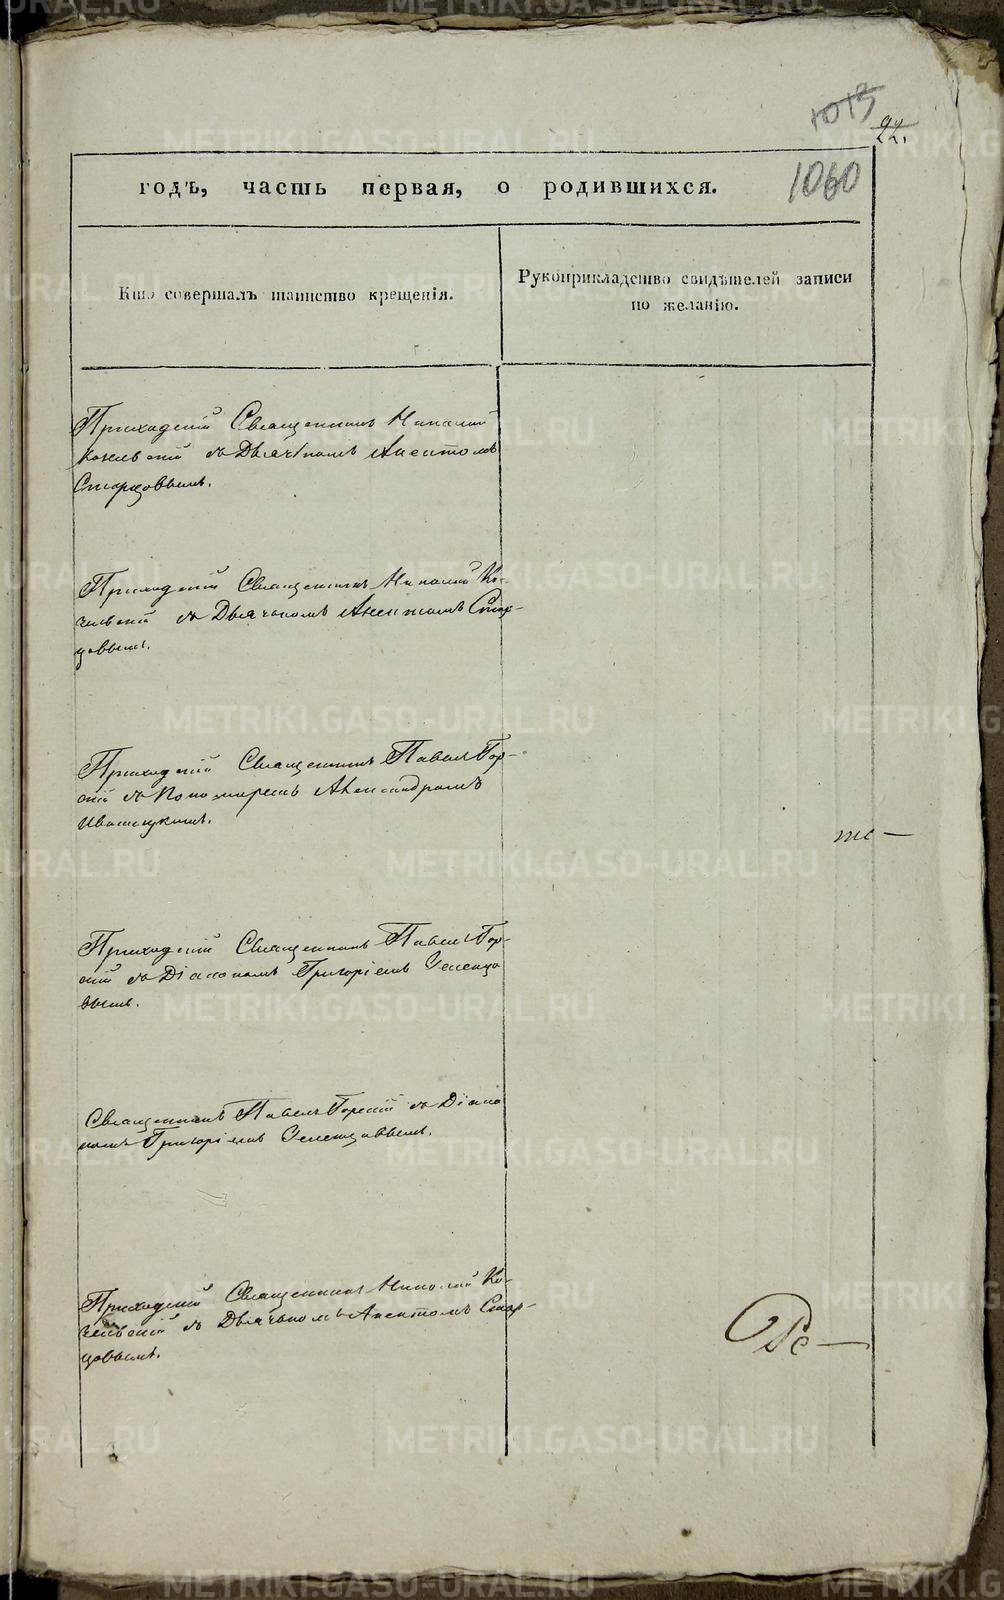 1013
22.
1060
годъ, часть первая, о родившихся.
Кто совершалъ таинство крещенія.
Рукоприкладство свидѣтелей записи
по желанію.
Приходскій Священникъ Николай
съ Дьячкомъ Аксентомъ
Старцовымъ.
Приходскій Священникъ Николай Ко-
чевскій съ Дьячкомъ Аксентомъ Стар-
цовымъ.
Приходскій Священникъ Павелъ Гор-
скій съ Пономаремъ Александромъ
Ивашукимъ.
те —
Приходскій Священникъ Павелъ Гор-
скій съ Діакономъ Григоріемъ Зеленцо
вымъ.
Священникъ Павелъ Горскій съ Діако
номъ Григоріемъ Зеленцовымъ.
Приходскій Священникъ Николай Ко-
чевскій съ Дьячкомъ Аксентомъ Стар-
цовымъ.
METRIKI.GASO-URAL.RU